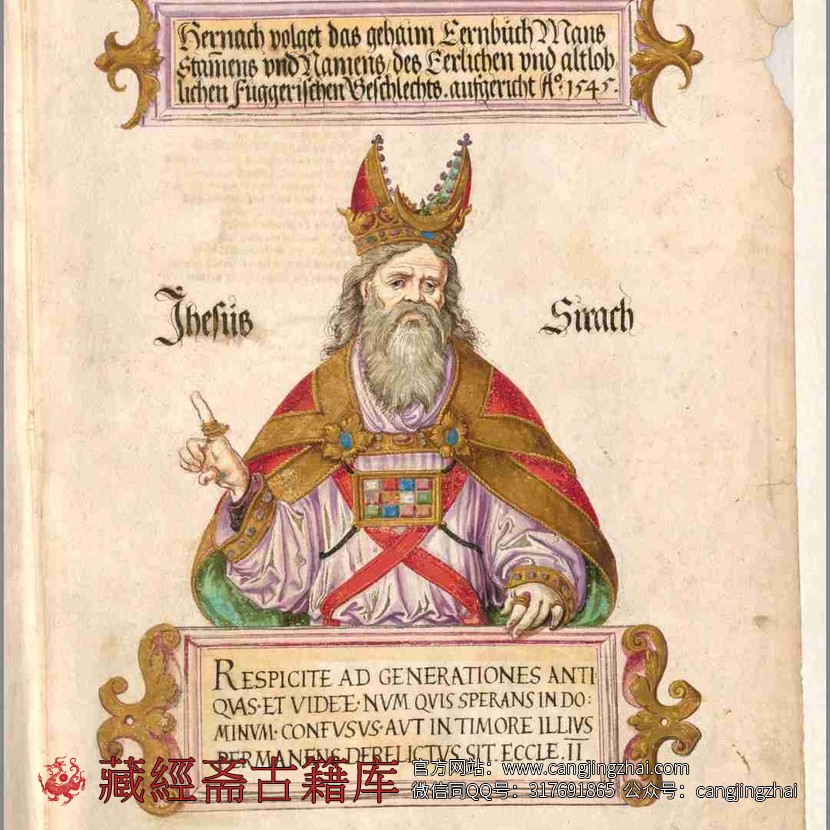 Hernach volget das gehaim Eernbuch Mans
Stam̄ens vnd Namens, des Eerlichen vnd altlob
lichen Fuggerischen Geschlechts. aufgericht Aº: 1545.
Jhesus Sirach
RESPICITE AD GENERATIONES ANTI
QVAS·ET VIDETE·NVM QVIS SPERANS IN DO:
MINVM·CONFVSVS·AVT IN TIMORE ILLIVS
PERMANENS DERELICTVS SIT. ECCLE. II
藏經斋古籍库
官方网站：www.cangjingzhai.com
微信同QQ号：317691865 公众号：cangjingzhai